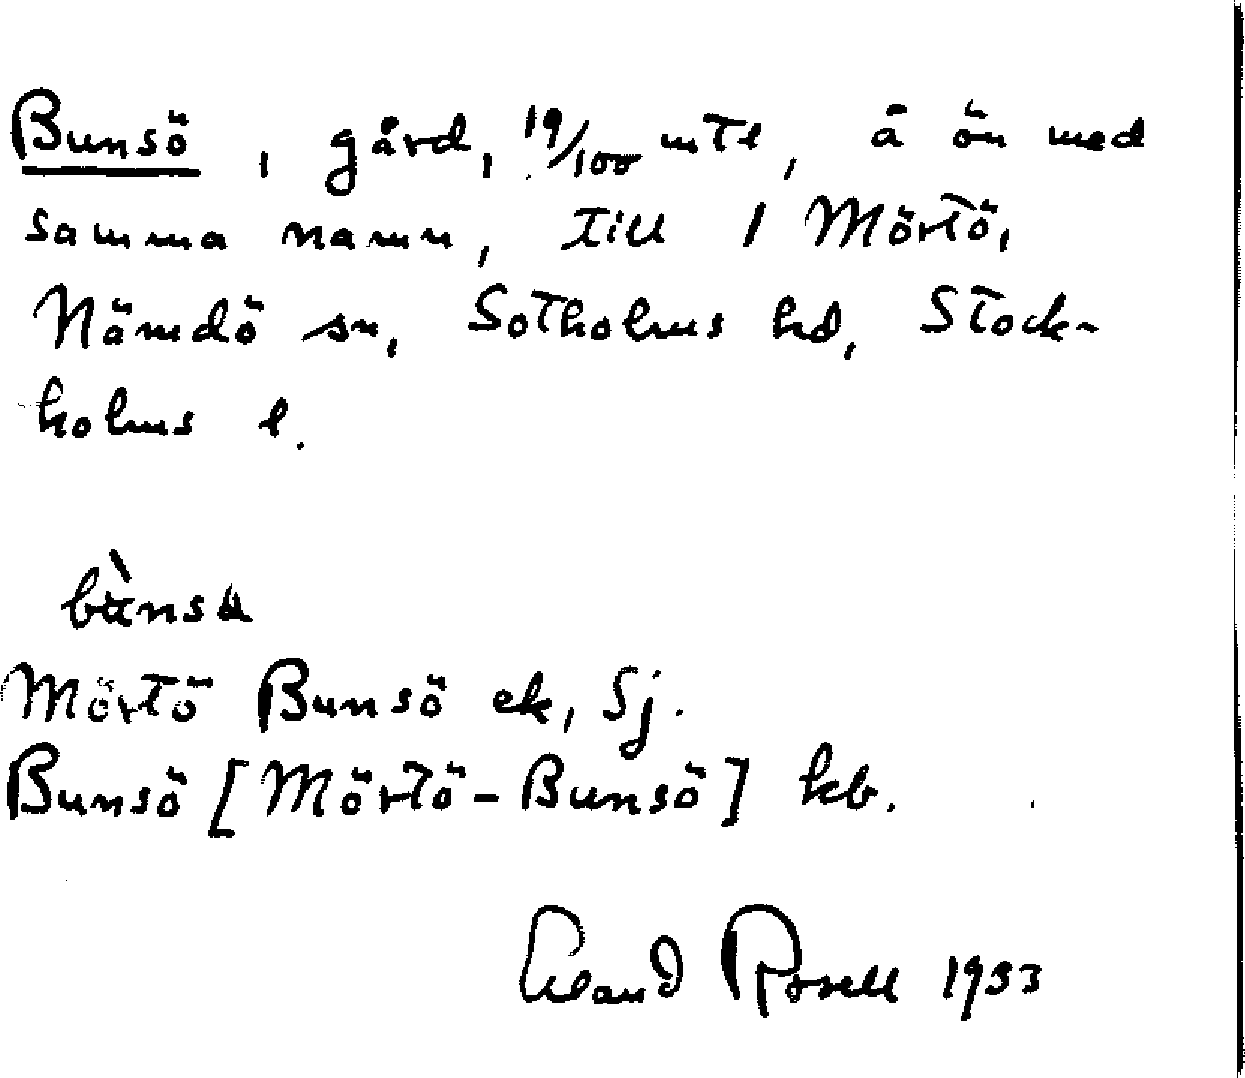 Bunsö, gård, 19/100 mtl, å ön med
samma namn, till 1 Mörtö,
Nämdö sn, Sotholms hd, Stock-
holms l.
Mörtö Bunsö ek, Sj.
Bunsö [Mörtö-Bunsö] kb.
Erland Rosell 1953